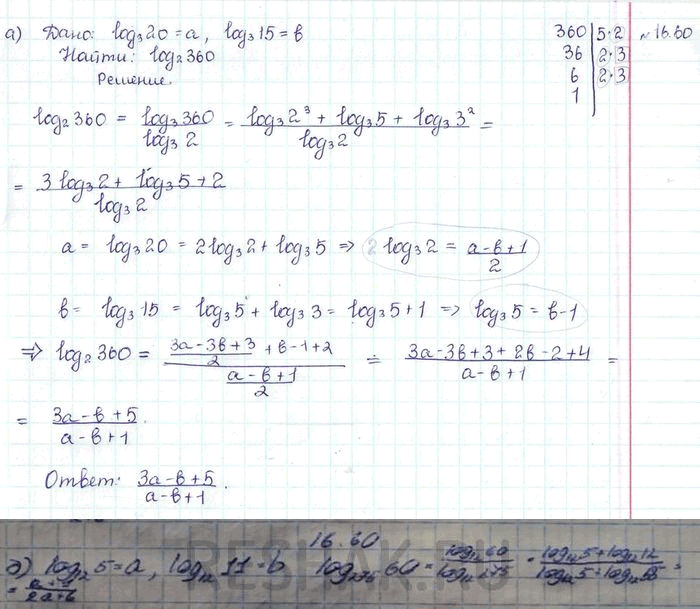 а) Дано: log₃20 = a, log₃15 = b
Найти: log₂360
Решение.
360 | 5·2
36 | 2·3
6 | 2·3
1
№16.60
log₂360 = log₃360 / log₃2 = (log₃2³ + log₃5 + log₃3²) / log₃2 =
= (3log₃2 + log₃5 + 2) / log₃2
a = log₃20 = 2log₃2 + log₃5 ⇒ log₃2 = (a-b+1) / 2
b = log₃15 = log₃5 + log₃3 = log₃5 + 1 ⇒ log₃5 = b-1
⇒ log₂360 = ((3a-3b+3)/2 + b-1+2) / ((a-b+1)/2) = (3a-3b+3+2b-2+4) / (a-b+1) =
= (3a-b+5) / (a-b+1).
Ответ: (3a-b+5) / (a-b+1).
16.60
RESHAK.RU
log₁₂5 = a, log₁₂11 = b log₂₇₅60 = log₁₂60 / log₁₂275 = (log₁₂5 + log₁₂12) /